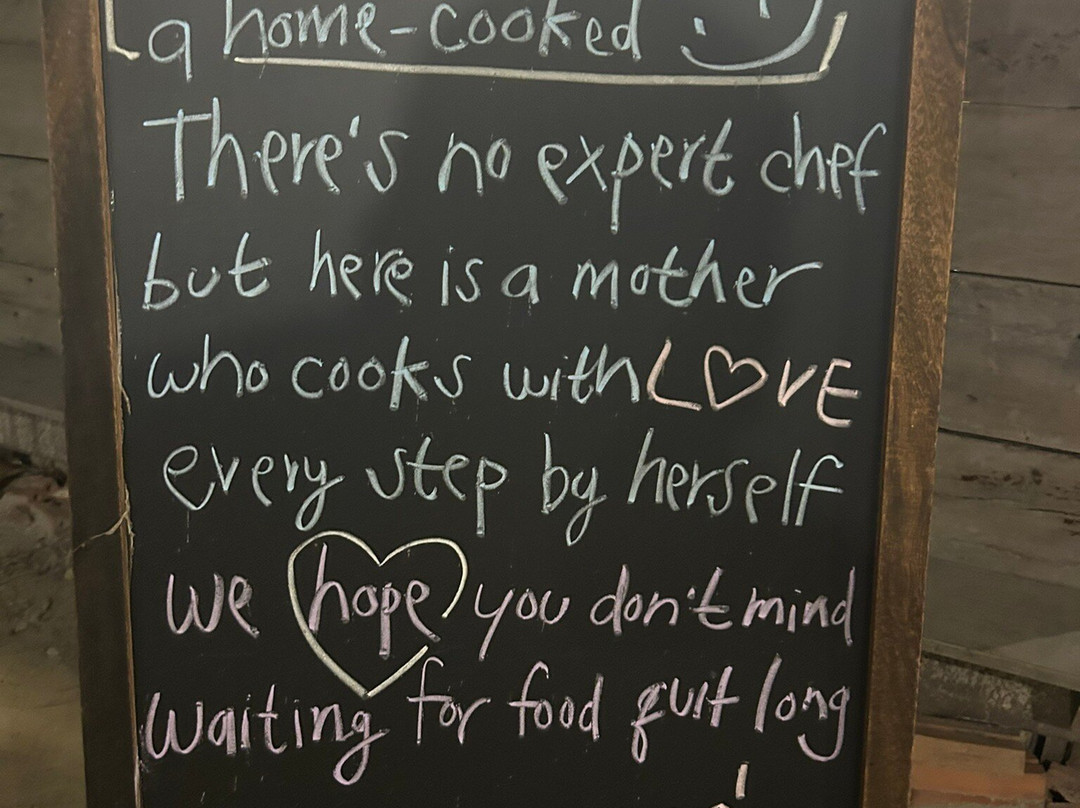 a home-cooked :)
There's no expert chef
but here is a mother
who cooks with L♡VE
every step by herself
We hope you don't mind
waiting for food quit long